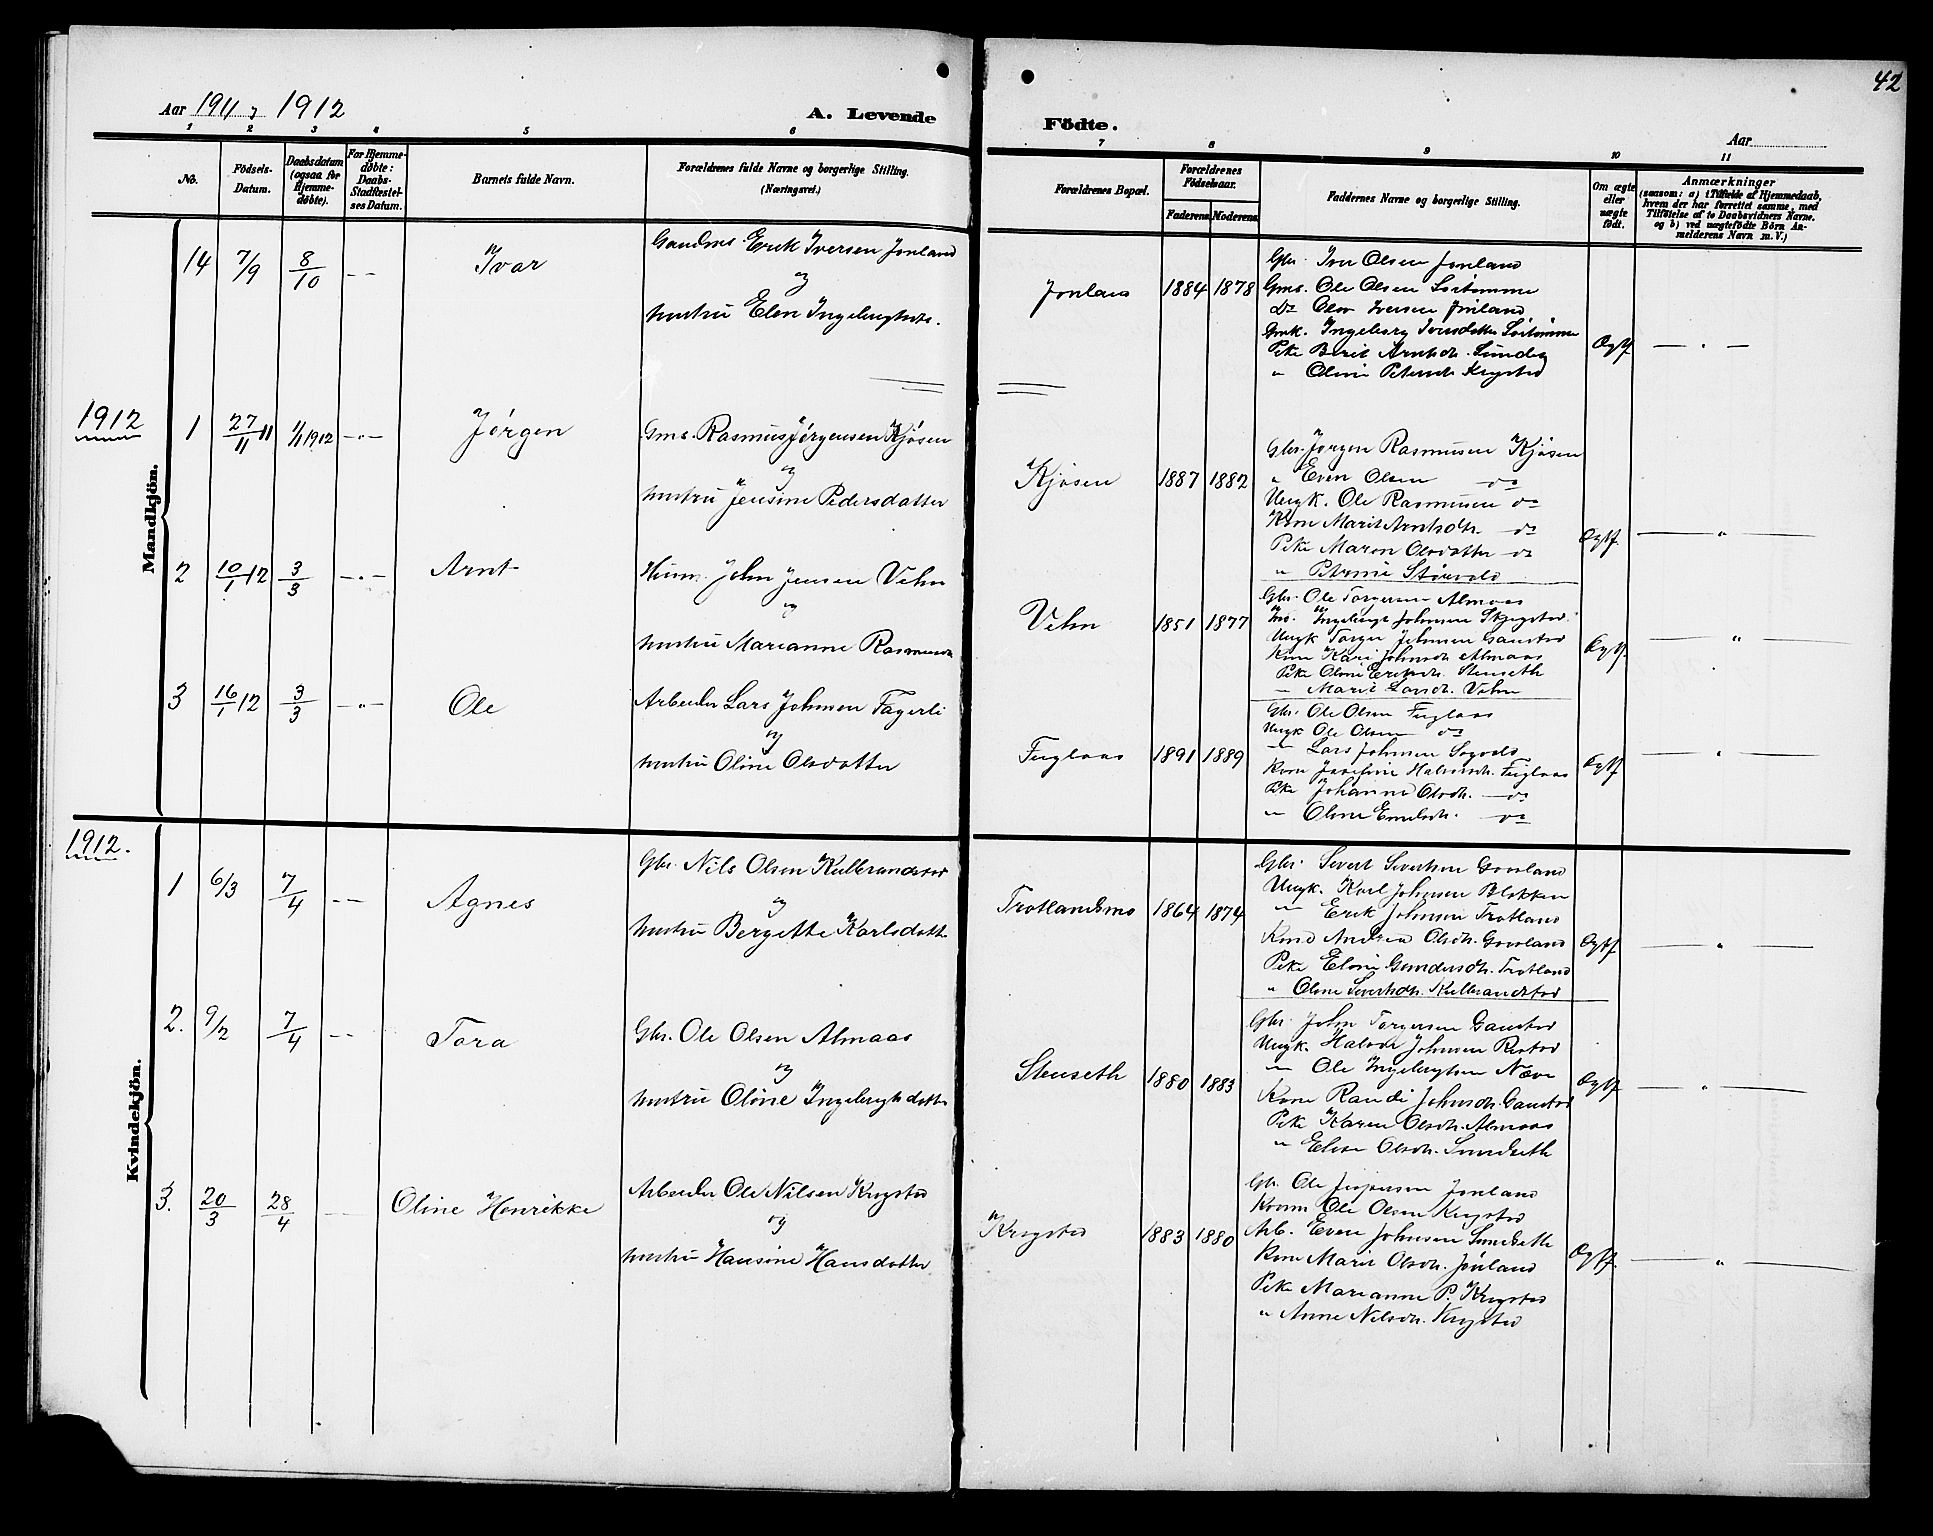 42
Aar 1911 og 1912
A. Levende
Födte.
Aar
1 2 3 4 5 6 7 8 9 10 11
No.
Födsels-Datum.
Daabsdatum (ogsaa for Hjemme-döbte).
For Hjemme-döbte: Daabs-Stadfæstel-ses Datum.
Barnets fulde Navn.
Forældrenes fulde Navne og borgerlige Stilling. (Næringsvei.)
Forældrenes Bopæl.
Forældrenes Födselsaar.
Faderens Moderens
Faddernes Navne og borgerlige Stilling.
Om ægte eller uægte födt.
Anmærkninger
(saasom: a) i Tilfælde af Hjemmedaab,
hvem der har forrettet samme, med
Tilföielse af to Daabsvidners Navne.
og b) ved uægtefödte Börn An-
melderens Navn m. V.)
Mandkjön.
14 7/9 8/10 Ivar
Gaardms Erik Iversen Jonland
og
hustru Elen Ingebrigtsdt.
Jonland 1884 1878
Gbr. Iver Olsen Jonland
Gms. Ole Olsen
do Olav Iversen Jonland
Gmk. Ingeborg Iversdatter
Pike Berit Arntsdt.
" Oline Petersdt. Krogstad
Ægtf
1912
1 27/11 11 1/1 1912 Jørgen
Gms. Rasmus Jørgensen Kjøsen
og
hustru Jensine Pedersdatter
Kjøsen 1887 1882
Gbr. Jørgen Rasmussen Kjøsen
" Even Olsen do
Ungk. Ole Rasmussen do
Kone Marit Arntsdtr. do
Pike Maren Olsdatter do
" Petrine
Ægtf.
2 10/1 12 3/3 Arnt
Husm. John Jensen Vehn
og
hustru Marianne Rasmusdt
Vehn 1851 1877
Gbr. Ole Torgersen Almaas
Ingebrigt Johnsen
Ungk Torger Johnsen Gaustad
Kone Kari Johnsdtr. Almaas
Pike Oline Eriksdtr. Stenseth
" Marit Larsdt. Vehn
Ægtf.
3 16/1 12 3/3 Ole
Arbeider Lars Johnsen Fagerli
og
hustru Oline Olsdatter
Fuglaas 1891 1889
Gbr. Ole Olsen Fuglaas
Ungk Ole Olsen do
" Lars Johnsen
Kone Josefine Fuglaas
Pike Johanne Olsdt. do
" Oline do
Ægtf
1912.
Kvindekjön.
1 6/3 7/4 Agnes
Gbr. Nils Olsen Kulbrandstad
og
hustru Bergitte Karlsdatter
Trotlandsmo 1864 1874
Gbr. Sivert Sivertsen
Ungk. Karl Johnsen Blokken
" Erik Johnsen Trotland
Kone Andrea Olsdtr.
Pike Eline Gundersdtr. Trotland
" Oline Sivertsdtr. Kulbrandstad
Ægtf
2. 9/2 7/4 Tora
Gbr. Ole Olsen Almaas
og
hustru Oline Ingebrigtsdatter
Stenseth 1880 1883
Gbr. John Torgersen Gaustad
Ungk. Halvor Johnsen
" Ole Ingebrigtsen
Kone Randi Johnsdtr. Gaustad
Pike Karen Olsdtr. Almaas
" Elise Olsdtr. Sundseth
Ægtf
3. 20/3 28/4 Oline Henrikke
Arbeider Ole Nilsen Krogstad
og
hustru Hansine Hansdatter
Krogstad 1883 1880
Gbr. Ole Jonland
Ole Olsen Krogstad
Arb. Even Johnsen Sundseth
Kone Marit Olsdtr. Jonland
Pike Marianne P. Krogstad
" Anne Nilsdtr. Krogstad
Ægtf.